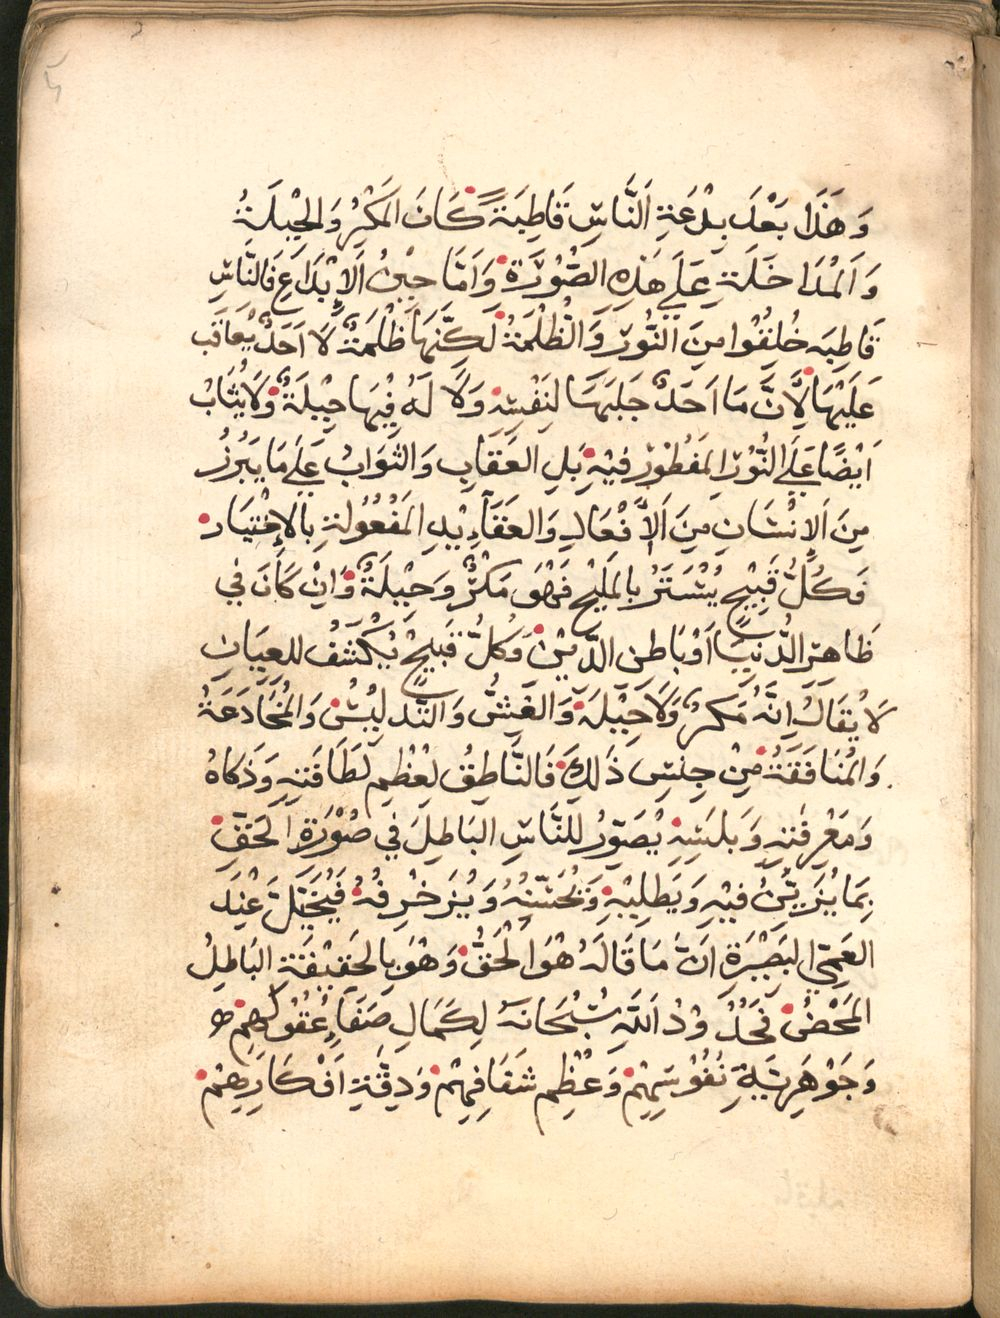 وَهَذَا بَعْدَ بِدْعَةِ النَّاسِ قَاطِبَةً كَانَ المَكْرُ وَالحِيْلَةُ
وَالمُدَاخَلَة عَلَى هَذِهِ الصُّوْرَةِ وَاَمَّا حِيْنُ الاِبْدَاعِ فَالنَّاسِ
قَاطِبَه خُلِقُوا مِنَ النُّوْرِ وَالْظُلْمَةِ لَكِنَّهَا ظُلْمَةٌ لَا اَحَدٌ يُعَاقَب
عَلَيْهَا لِاَنَّ مَا اَحَدٌ جَلَبَهَا لِنَفْسِهِ وَلَا لَهُ فِيْهَا حِيْلَةٌ وَلَا يُثَابُ
اَيْضًا عَلَى النُّوْرِ المَفْطُوْرِ فِيْهِ بَلِ العِقَابِ وَالثَوَابُ عَلَى مَا يَبْرُزُ
مِنَ الاِنْسَانِ مِنَ الاَفْعَالِ وَالعَقَائِدِ المَفْعُوْلَةِ بِالاِخْتِيَارِ
فَكُلُّ قَبِيْحٍ يُسْتَتَرُ بِالمَلِيْحِ فَهُوَ مَكْرٌ وَحِيْلَةٌ وَاِنْ كَانَ فِي
ظَاهِرِ الدُّنْيَا اَوْ بَاطِنِ الدِّيْنِ وَكُلُّ قَبِيْحٍ يُكْشَفُ لِلعِيَانِ
لَا يُقَالُ اِنَّهُ مَكْرٌ وَلَا حِيْلَة وَالغَشُّ وَالتَّدلِيْسُ وَالمُخَادَعَةُ
وَالمُنَافَقَةُ مِنْ جِنْسِ ذَلِكَ فَالنَّاطِقُ لِعُظْمِ لَطَافَتِهِ وَذَكَاهُ
وَمَعْرِفَتِهِ وَبَلسَتِهِ يُصَوِّرُ لِلنَّاسِ البَاطِلَ فِي صُوْرَةِ الحَقِّ
بِمَا يُزَيِّنُ فِيْهِ وَيَطلِيْهِ وَيُحَسِّنُهُ وَيُزَخْرِفُهُ فَيُخَيَّلَ عِنْدَ
العَمِيِّ البَصِيْرَةِ اَنَّ مَا قَالَهُ هُوَ الْحَقُّ وَهُوَ بِالحَقِيْقَةِ البَاطِلُ
المَحْضُ فَحُدُوْدُ اللهِ سُبْحَانَهُ لِكَمَالِ صَفَاءِ عُقُولِهِم
وَجَوْهَرِيَّةِ نُفُوْسِهِمْ وَعُظْمِ شَفَافِهِمْ وَدِقَّةِ اَفْكَارِهِمْ